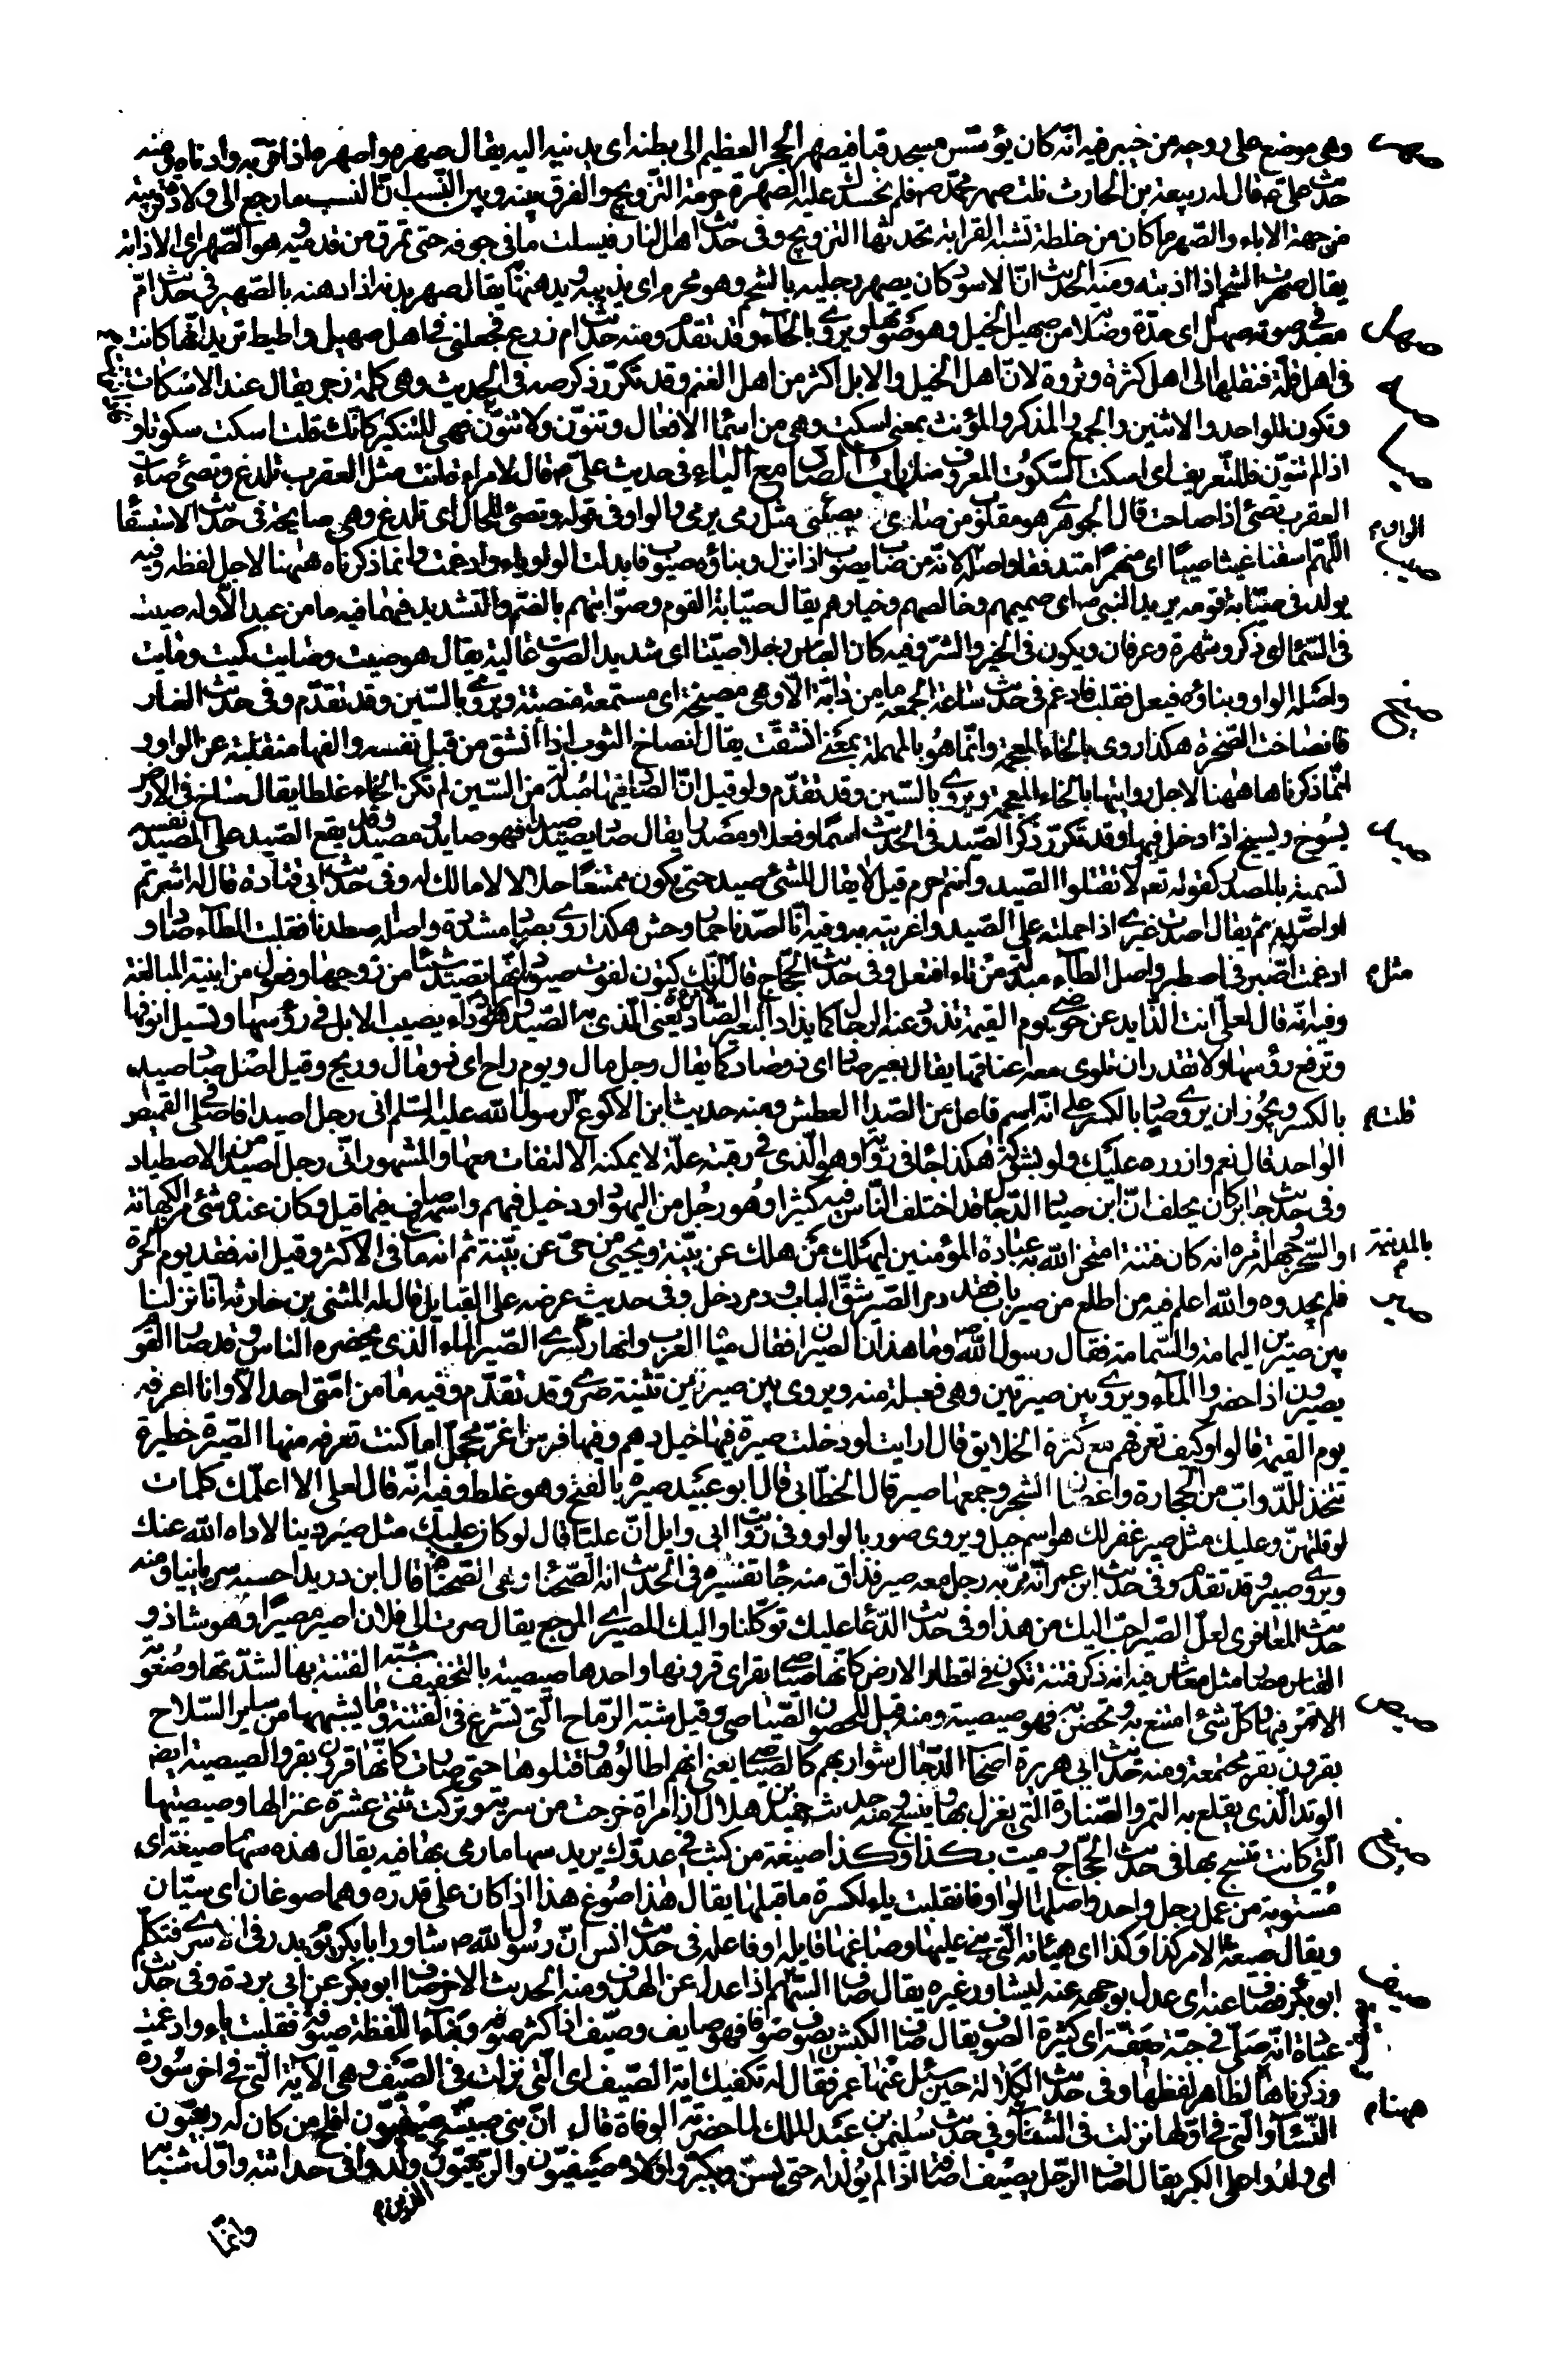 وهى موضع على روحه من خيبر فيه انّه كان يؤسّس مسجد قبا فيصهر الحجر العظيم الى بطنه اى يدنيه اليه يقال صهره واصهره اذا قرّبه وادناه ومنه
صهر
حدث علىّ قال له ربيعة بن الحارث نلت صهر محمّد صم فلم نحسدك عليه الصهر حرمة التّزويج والفرق بينه وبين النّسب انّ النسب ما رجع الى ولادة قريبة
من جهة الاباء والصّهر ما كان من خلطة تشبه القرابة يحدثها التزويج وفى حدث اهل النار فيسلت ما فى جوفه حتى تمرق من قدميه وهو الصّهر اى الاذابة
يقال صهرت الشحم اذا اذبته ومنه الحدث انّ الاسود كان يصهر رجليه بالشحم وهو محرم اى يذيبه ويدهنهما يقال صهر بدنه اذا دهنه بالصّهير فى حدث امّ
معبد فى صوته صهل اى حدّة وصلابة من صهيل الخيل وهو صوتها ويروى بالحاء وقد تقدّم ومنه حدث امّ زرع فجعلنى فى اهل صهيل واطيط تريد انّها كانت
صهل
فى اهل قلّة فنقلها الى اهل كثرة وثروة لانّ اهل الخيل والابل اكثر من اهل الغنم وقد تكرّر ذكر صه فى الحديث وهى كلمة زجر يقال عند الاسكات
صه
وتكون للواحد والاثنين والجمع والمذكر والمؤنث بمعنى اسكت وهى من اسماء الافعال وتنوّن ولا تنوّن فهى للتنكير كانّك قلت اسكت سكوتا و
اذا لم تنوّن فللتّعريف اى اسكت السّكوت المعروف منك باب الصاد مع الياء فى حديث علىّ قال لامراة انت مثل العقرب تلدغ وتصئ صاءت
العقرب تصئ اذا صاحت قال الجوهرى هو مقلوب من صاى يصئى مثل رمى يرمى والواو فى قوله وتصئ للحال اى تلدغ وهى صايحة فى حدث الاستسقا
اللّهمّ اسقنا غيثا صيبا اى منهمرا متدفقا واصله الواو لانه من صاب يصوب اذا نزل وبناؤه صيوب فابدلت الواو ياء وادغمت وانما ذكرناه ههنا لاجل لفظه وفيه
صيب
يولد فى صيّابة قومه يريد النبى ص اى صميمهم وخالصهم وخيارهم يقال صيّابة القوم وصوّابتهم بالضّم والتشديد فيهما فيه ما من عبد الّا وله صيت
فى السّماء اى ذكر وشهرة وعرفان ويكون فى الخير والشرّ فيه كان العباس رجلا صيّتا اى شديد الصوت عاليه يقال هو صيت وصايت كميت ومايت
واصله الواو وبناؤه فيعل فقلب فادغم فى حدث ساعة الجمعه ما من دابّة الّا وهى مصيخة اى مستمعة منصتة ويروى بالسّين وقد تقدّم وفى حدث الغار
صيخ
فانصاخت الصّخرة هكذا روى بالخاء المعجمة وانّما هو بالمهملة بمعنى انشقّت يقال انصاخ الثوب اذا انشق من قبل نفسه والفها منقلبة عن الواو و
انّما ذكرناها ههنا لاجل روايتها بالخاء المعجمة ويروى بالسّين وقد تقدّم ولو قيل انّ الصاد فيها مبدلة من السّين لم تكن الخاء غلطا يقال ساخ فى الارض
يسوخ ويسيخ اذا دخل فيها وقد تكرّر ذكر الصّيد فى الحدث اسما وفعلا ومصدرا يقال صاد يصيد صيدا فهو صايد ومصيد وقد يقع الصّيد على المصيد نفسه
صيد
تسمية بالمصدر كقوله تعم لا تقتلوا الصّيد وانتم حرم قيل لا يقال للشئ صيد حتى يكون ممتنعا حلالا لا مالك له وفى حدث ابى قتادة قال له اشرتم
او اصّدتم يقال اصدت غيرى اذا حملته على الصّيد واغريته به وفيه انّا اصّدنا حمار وحش هكذا روى بصاد مشدّدة واصله اصطدنا فقلبت الطاء صادا و
ادغمت مثل اصّبر فى اصطبر واصل الطاء مبدلة من تاء افتعل وفى حدث الحجّاج قال انّك كتون لفوت صيود اى انّها تصيد شيئا من زوجها وفعول من ابنية المبالغة
وفيه انّه قال لعلى انت الذّايد عن حوضى يوم القيمة تذود عنه الرجال كما يذاد البعير الصّاد يعنى الّذى به الصّيد وهو داء يصيب الابل فى رؤسها وتسيل انوفها
وترفع رؤسها ولا تقدر ان تلوى معه اعناقها يقال بعير صاد اى ذو صاد كما يقال رجل مال ويوم راح اى ذو مال وريح وقيل اصل صاد صيد
بالكسر ويجوز ان يروى صاد بالكسر على انّه اسم فاعل من الصّدا العطش ومنه حديث ابن الاكوع قلت لرسول الله عليه السّلم انى رجل اصيد افاصلّى فى القميص
الواحد قال نعم وازرره عليك ولو بشوكة هكذا جاء فى رواية وهو الّذى فى رقبته علّة لا يمكنه الالتفات معها والمشهور انّى رجل اصيد من الاصطياد
وفى حدث جابر كان يحلف انّ ابن صياد الدّجال قد اختلف النّاس فيه كثيرا وهو رجل من اليهود او دخيل فيهم واسمه صاف فيما قيل وكان عنده شئ من الكهانة
او السّحر وجملة امره انه كان فتنة امتحن الله به عباده المؤمنين ليهلك من هلك عن بيّنة ويحيى من حىّ عن بيّنة ثم انه مات بالمدينة فى الاكثر وقيل انه فقد يوم الحرّة
فلم يجدوه والله اعلم فيه من اطلع من صير باب فقد دمر الصّير شقّ الباب ودمر دخل وفى حديث عرضه على القبايل قال له المثنى بن حارثه انا نزلنا
صير
بين صيرين اليمامة والسّمامة فقال رسول الله وما هذان الصيران فقال مياه العرب وانهار كسرى الصّير الماء الّذى يحضره الناس وقد صار القوم
يصيرون اذا حضروا الماء ويروى بين صيرتين وهى فعلة منه ويروى بين صريين تثنية صرى وقد تقدّم وفيه ما من امّتى احد الّا وانا اعرفه
يوم القيمة قالوا وكيف تعرفهم مع كثرة الخلايق قال ارايت لو دخلت صيرة فيها خيل دهم وفيها فرس اغرّ محجّل اما كنت تعرفه منها الصّيرة حظيرة
تتخذ للدّوابّ من الحجارة واغصان الشجر وجمعها صير قال الخطّابى قال ابو عبيد صيرة بالفتح وهو غلط وفيه انّه قال لعلى الا اعلّمك كلمات
لو قلتهنّ وعليك مثل صير غفر لك هو اسم جبل ويروى صور بالواو وفى رواية ابى وايل انّ عليّا قال لو كان عليك مثل صير دينا لاداه الله عنك
ويروى صبير وقد تقدّم وفى حدث ابن عمر انّه مرّ به رجل معه صير فذاق منه جاء تفسيره فى الحدث انّه الصّحنا وهى الصّحناة قال ابن دريد احسبه سريانيا ومنه
حدث المعافرى لعلّ الصّير احبّ اليك من هذا وفى حدث الدّعا عليك توكّلنا واليك المصير اى المرجع يقال صرت الى فلان اصير مصيرا وهو شاذ و
القياس مصار مثل معاش فيه انه ذكر فتنة تكون فى اقطار الارض كانّها صياصى بقر اى قرونها واحدها صيصية بالتخفيف شبّه الفتنة بها لشدّتها وصعوبة
صيص
الامر فيها وكلّ شئ امتنع به وتحصّن به فهو صيصية ومنه قيل للحصون الصّياصى وقيل شبّه الرّماح الّتى تشرع فى الفتنة وما يشبهها من ساير السّلاح
بقرون بقر مجتمعة ومنه حدث ابى هريرة اصحاب الدّجال شواربهم كالصّياصى يعنى انهم اطالوها وفتلوها حتى صارت كانّها قرون بقر والصيصية ايض
الوتد الّذى يقلع به التمر والصّنارة الّتى يغزل بها وينسج ومنه حديث حميد بن هلال انّ امراة خرجت من سرية وتركت ثنتى عشرة عنزا لها وصيصيتها
الّتى كانت تنسج بها فى حدث الحجّاج رميت بكذا وكذا صيغة من كثب فى عدوّك يريد سهاما رمى بها فيه يقال هذه سهام صيغة اى
صيغ
مستوية من عمل رجل واحد واصلها الواو فانقلبت ياء لكسرة ما قبلها يقال هذا صوغ هذا اذا كان على قدره وهما صوغان اى سيّان
ويقال صيغة الامر كذا وكذا اى هيئاته الّتى بنى عليها وصاغها قايله او فاعله فى حدث انس انّ رسول الله ص شاور ابا بكر يوم بدر فى الاسرى فتكلّم
ابو بكر فصاف عنه اى عدل بوجهه عنه ليشاور غيره يقال صاف السّهم اذا عدل عن الهدف ومنه الحديث الاخر صاف ابو بكر عن ابى بردة وفى حدث
صيف
عبادة انّه صلّى فى جبّة صيّفة اى كثيرة الصوف يقال صاف الكبش يصوف صوفا فهو صايف وصيّف اذا كثر صوفه وبناء اللّفظة صيوفة فقلبت ياء وادغمت
وذكرناها ههنا لظاهر لفظها وفى حدث الكلالة حين سئل عنها عمر فقال له تكفيك اية الصّيف اى الّتى نزلت فى الصّيف وهى الاية الّتى فى اخر سورة
النّساء والّتى فى اوّلها نزلت فى الشتاء وفى حدث سليمن بن عبد الملك لما حضرته الوفاة قال انّ بنىّ صبية صيفيّون افلح من كان له ربعيّون
اى ولدوا على الكبر يقال اصاف الرّجل يصيف اصافة اذا لم يولد له حتى يسنّ ويكبر واولاده صيفيّون والربعيّون الذين ولدوا فى حداثته واوّل شبابه
وانّما